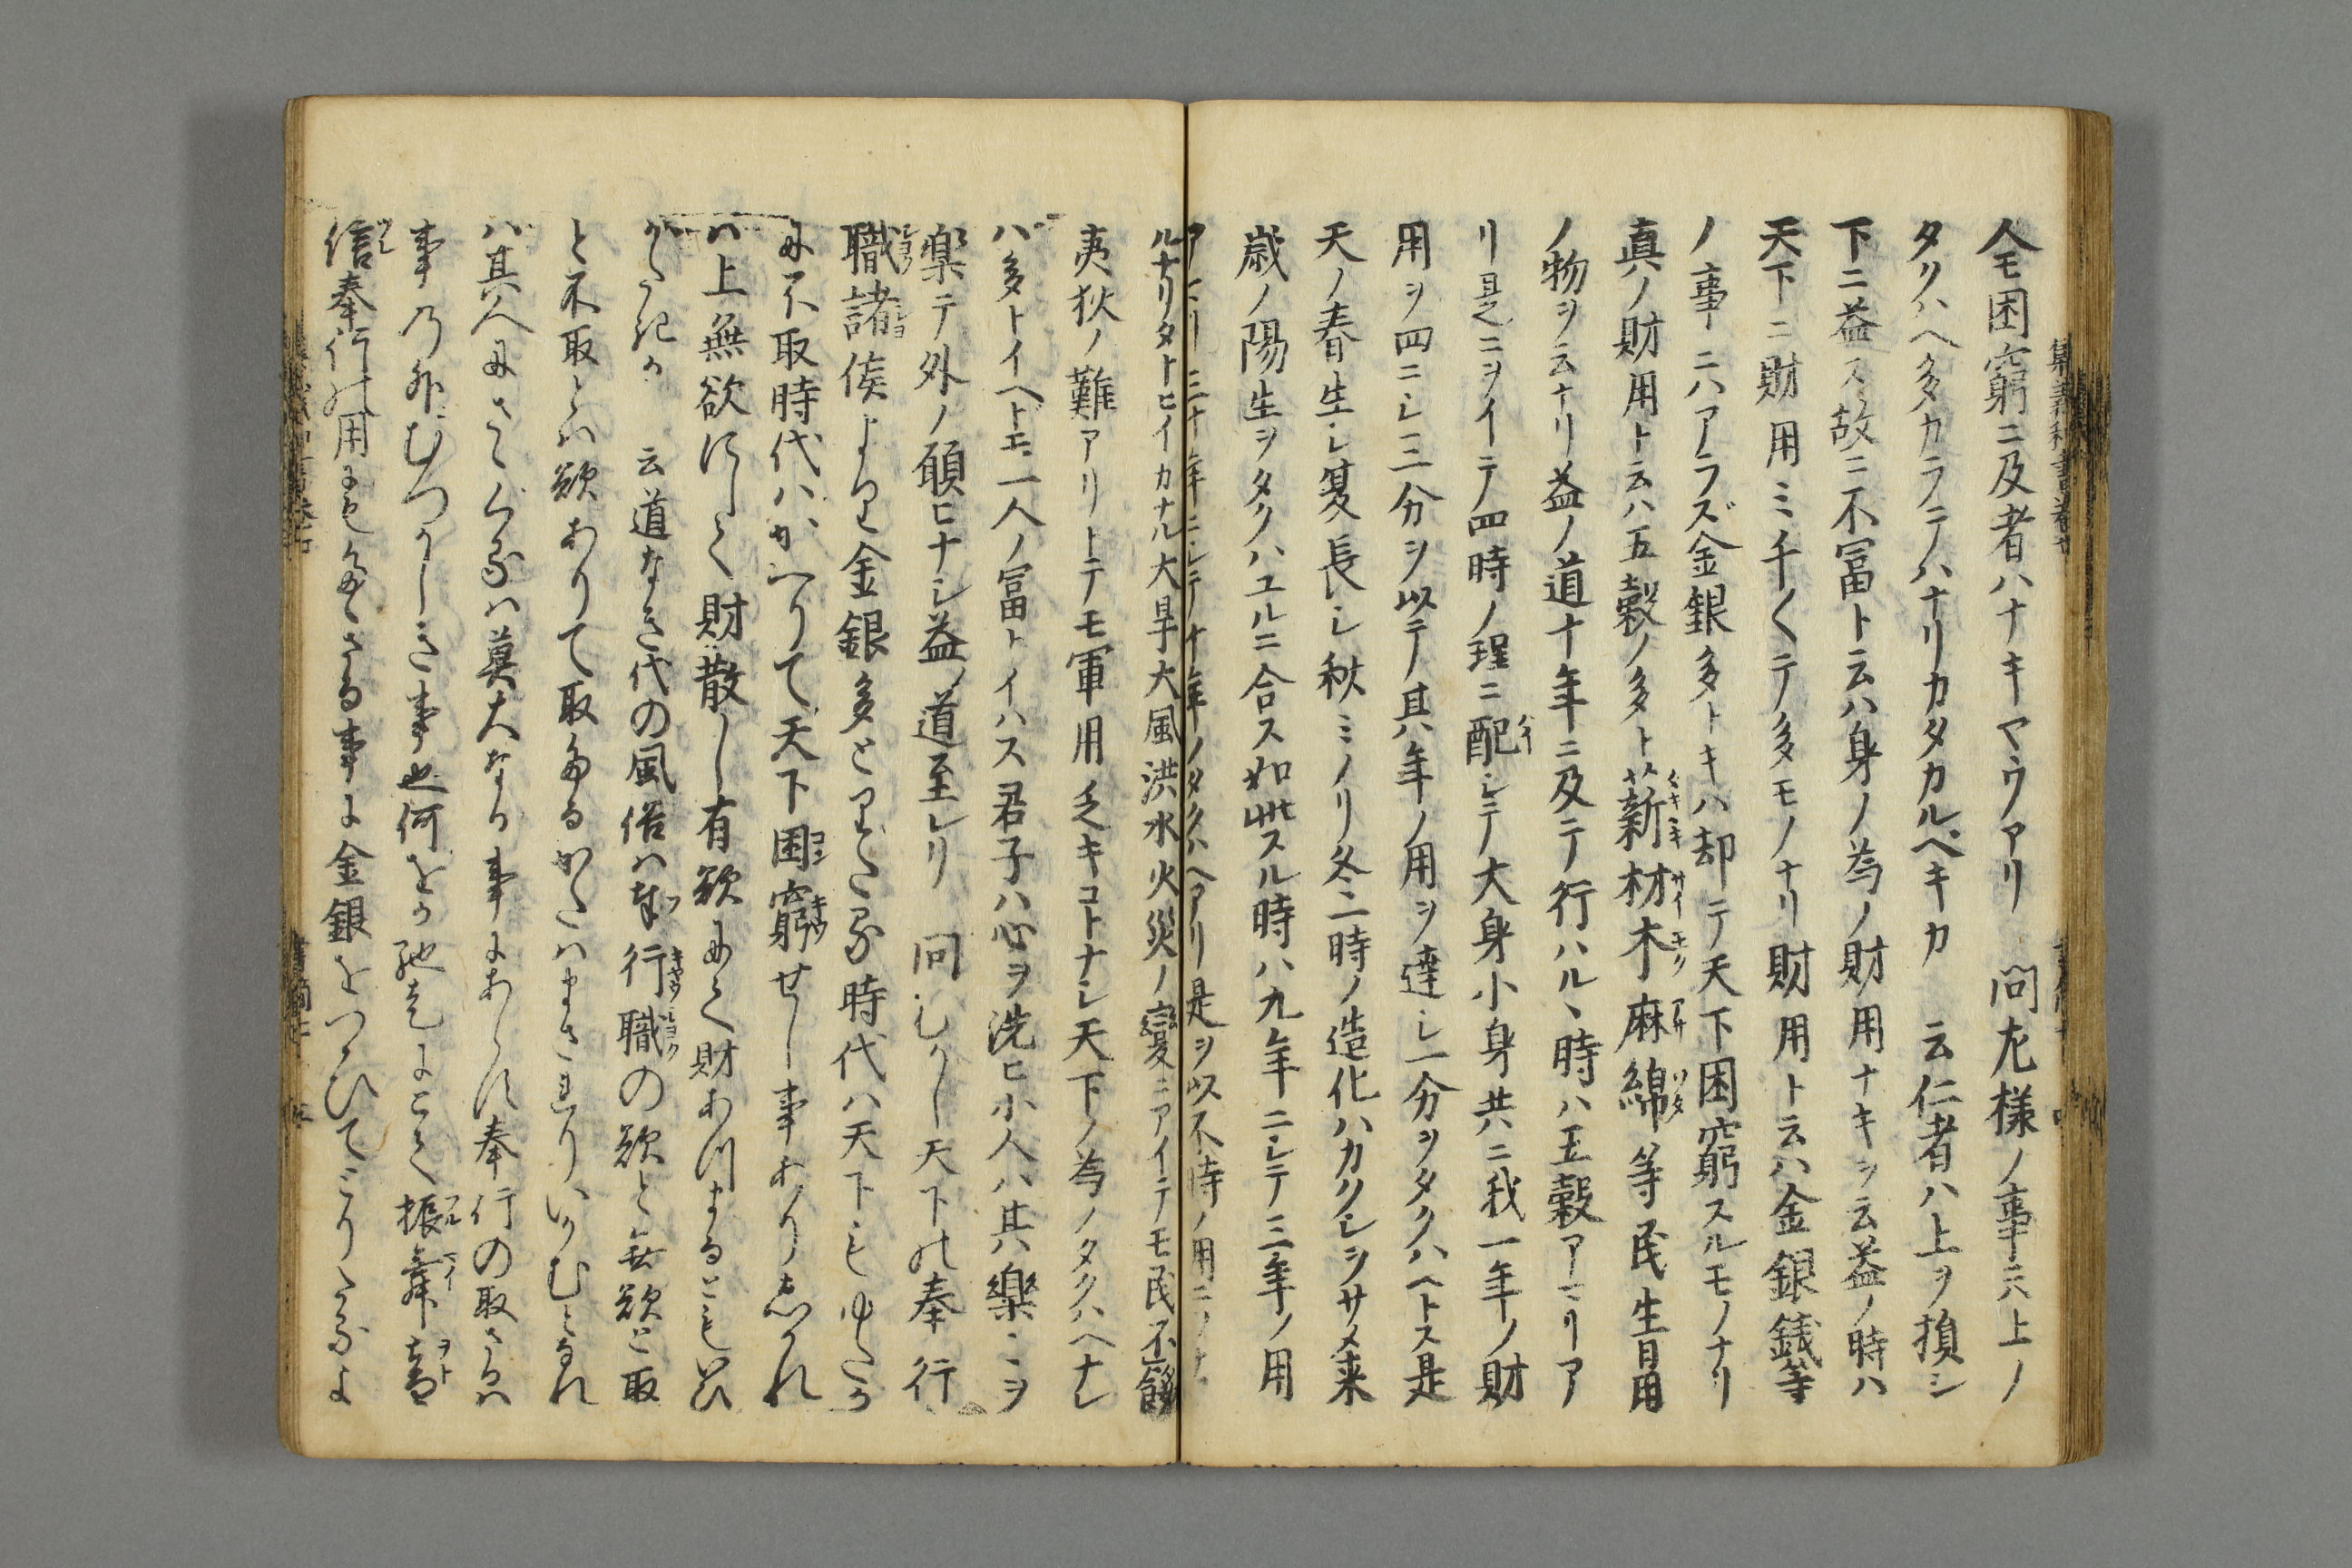 人モ困窮ニ及者ハナキマウアリ　問尤様ノ事ニ六上ノ
タクハヘ多カラテハナリカタカルベキカ　云仁者ハ上ヲ損シ
下ニ益ス故ニ不冨ト云ハ身ノ為ノ財用ナキヲ云益ノ時ハ
天下ニ財用ミチ〱テ多モノナリ財用ト云ハ金銀銭等
ノ事ニハアラズ金銀多トキハ却テ天下困窮スルモノナリ
真ノ財用ト云ハ五穀ノ多ト薪材木麻綿等民生日用
ノ物ヲ云ナリ益ノ道十年ニ及テ行ハルヽ時ハ五穀アマリア
リ是ニヲイテ四時ノ程ニ配シテ大身小身共ニ我一年ノ財
用ヲ四ニシ三分ヲ以テ其年ノ用ヲ達シ一分ヲタクハヘトス是
天ノ春生シ夏長シ秋ミノリ冬一時ノ造化ハカクシヲサメ来
歳ノ陽生ヲタクハユルニ合ス如此スル時ハ九年ニシテ三年ノ用
アマリ三十年ニシテ十年ノタクハヘアリ是ヲ以不時ノ用ニ
ルナリタトヒイカナル大旱大風洪水火災ノ変ニアイテモ民不餓
夷狄ノ難アリトテモ軍用乏キコトナシ天下ノ為ノタクハヘナレ
バ多トイヘトモ一人ノ冨トイハス君子ハ心ヲ洗ヒ小人ハ其楽ミヲ
楽テ外ノ願ヒナシ益ノ道至レリ　問むかし天下の奉行
職諸侯より金銀多とりたる時代ハ天下もゆたか
に不取時代ハかへりて天下困窮せし事あり志かれ
ハ上無欲にして財散し有欲にて財あつまるともいひ
がたきか　云道なき代の風俗ハ奉行職の欲と無欲と取
と不取とハ欲ありて取たるかたハまされりいかむとなれ
ハ其人にさゝぐるハ莫大なる事にあらす奉行の取さるハ
事の外むつかしき事也何をか馳走にことく振舞音
信奉行の用にもたゝさる事に金銀をつかひてこりたるよ